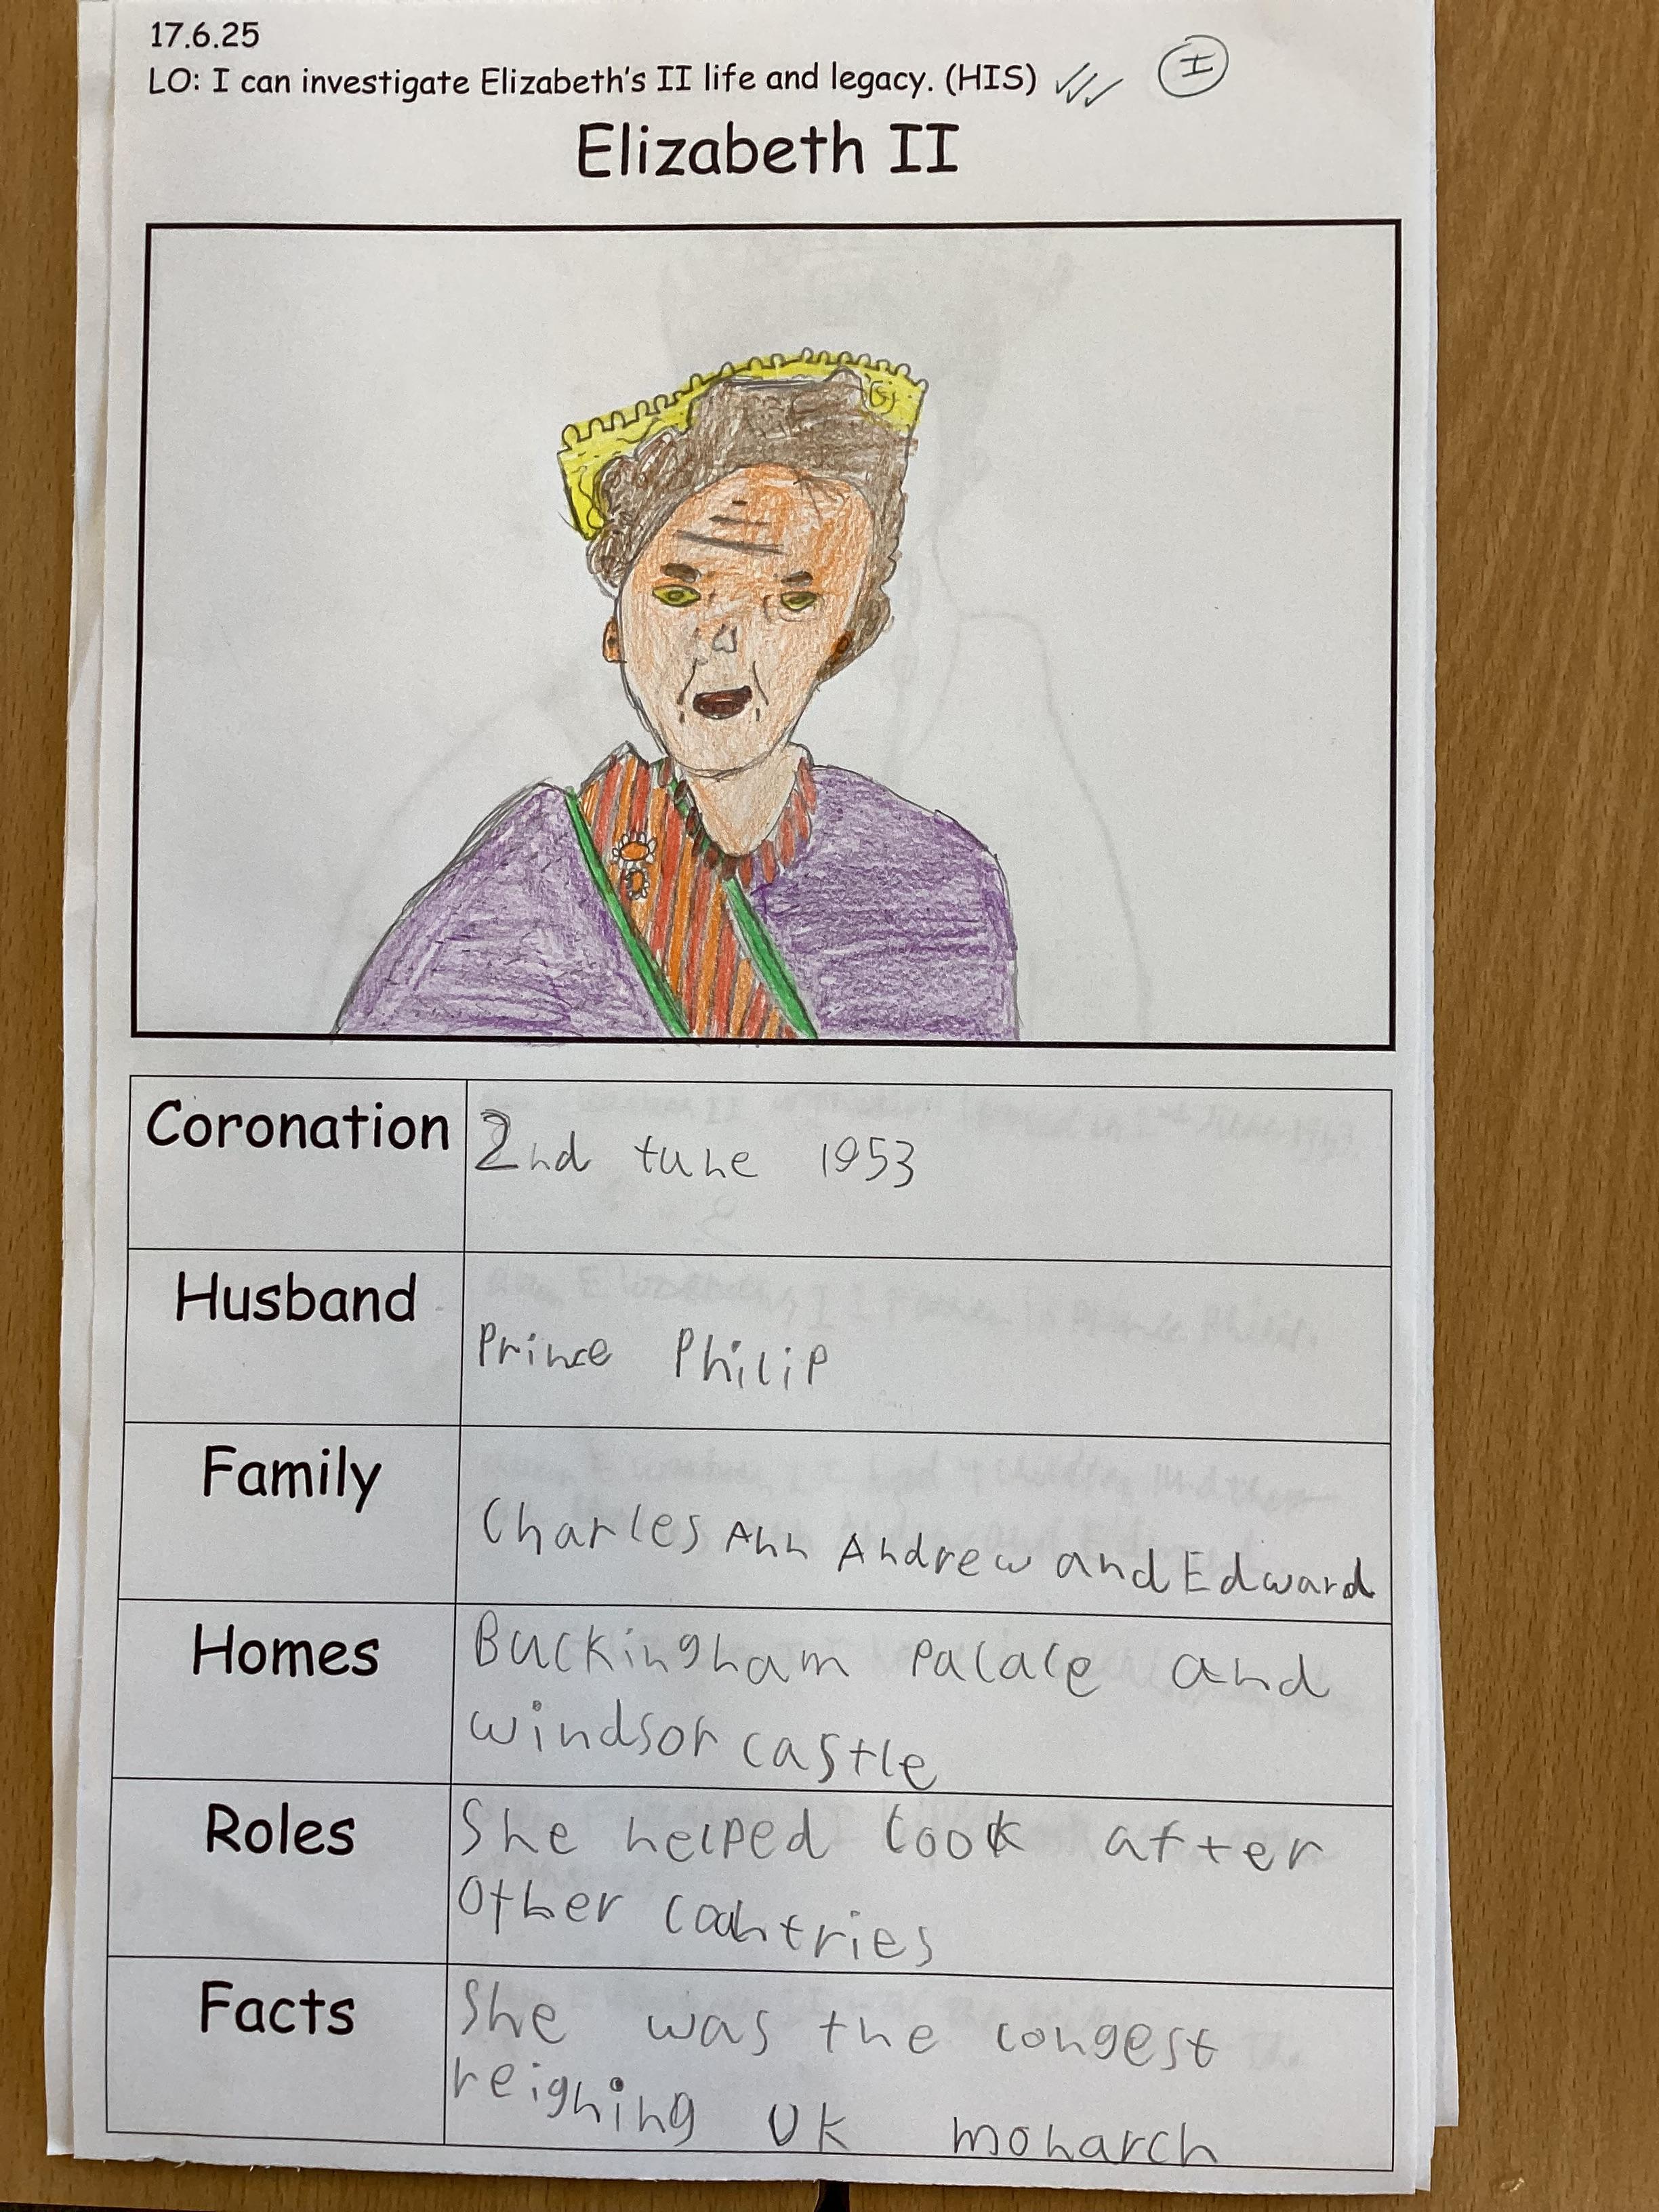 17.6.25
LO: I can investigate Elizabeth's II life and legacy. (HIS) I
Elizabeth II
Coronation
2nd tune 1953
Husband
Prince Philip
Family
Charles Ann Andrew and Edward
Homes
Buckingham Palace and
windsor castle
Roles
She helped look after
other countries
Facts
She was the longest
reigning UK monarch